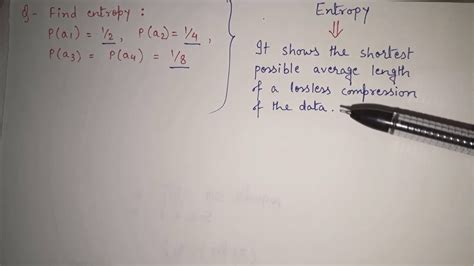 Q- Find entropy :
P(a1) = 1/2 , P(a2) = 1/4 ,
P(a3) = P(a4) = 1/8
Entropy
⇓
It shows the shortest
possible average length
of a lossless compression
of the data.